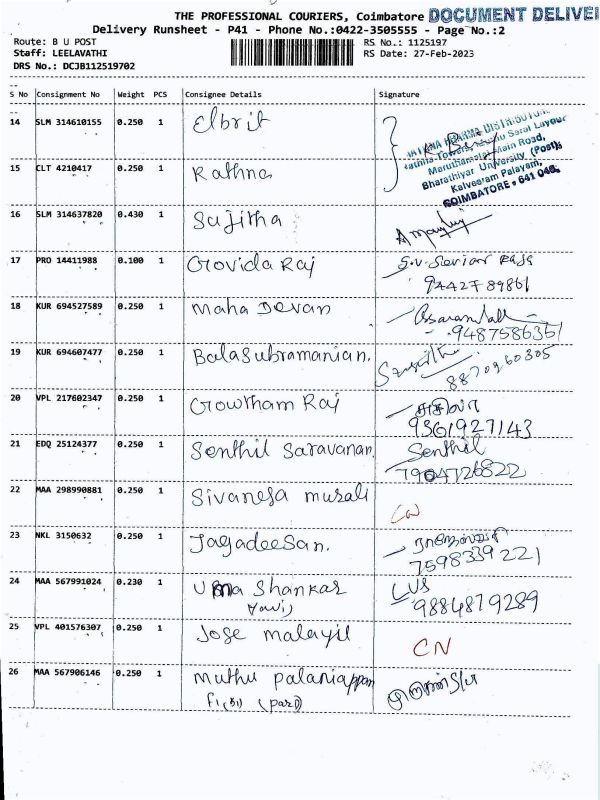 THE PROFESSIONAL COURIERS, Coimbatore DOCUMENT DELIVE
Delivery Runsheet - P41 - Phone No.:0422-3505555 - Page No.:2
Route: B U POST RS No.: 1125197
Staff: LEELAVATHI RS Date: 27-Feb-2023
DRS No.: DCJB112519702
S No Consignment No Weight PCS Consignee Details Signature
14 SLM 314610155 0.250 1 Elbrit
PHARMA DISTRIBUTORS
Towers, Sarai Layout
Maruthamalai Main Road,
Bharathiyar University (Post),
Kalveeram Palayam,
COIMBATORE - 641 046.
15 CLT 4210417 0.250 1 Rathna
16 SLM 314637820 0.430 1 Sujitha
17 PRO 14411988 0.100 1 Govida Raj
9442789861
18 KUR 694527589 0.250 1 Maha Devan
9487586351
19 KUR 694607477 0.250 1 BalaSubramanian.
8870960305
20 VPL 217602347 0.250 1 Gowtham Raj
9361927143
21 EDQ 25124377 0.250 1 Senthil Saravanan. Senthil
7904726822
22 MAA 298990881 0.250 1 Sivanesa murali CN
23 NKL 3150632 0.250 1 Jagadeesan.
7598339221
24 MAA 567991024 0.230 1 Uma Shankar LVS
9884879289
25 VPL 401576307 0.250 1 Jose malayil CN
26 MAA 567906146 0.250 1 Muthu palaniappan